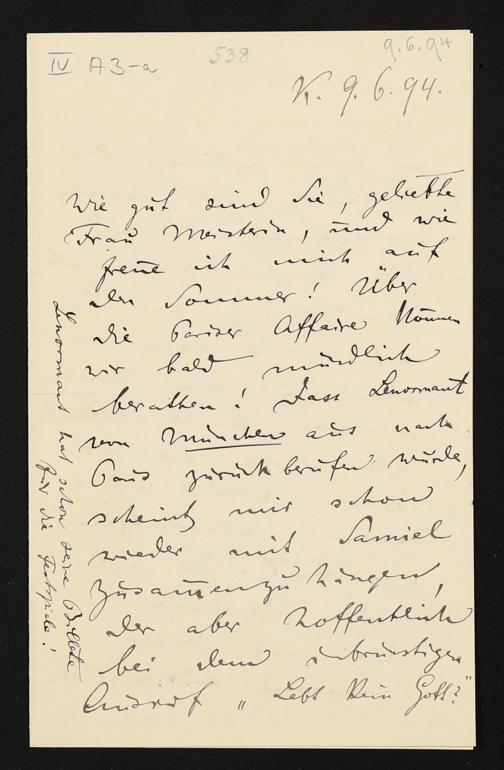 IV A3-a
538
9.6.94
K. 9.6.94.
Wie gut sind Sie, geliebte
Frau Meisterin, und wie
freue ich mich auf
den Sommer! Über
die Pariser Affaire können
wir bald mündlich
berathen! Dass Lenormant
von München aus nach
Paris zurückberufen wurde,
scheint mir schon
wieder mit Samiel
zusammenzuhängen,
der aber hoffentlich
bei dem inbrünstigen
Ausruf „Lebt kein Gott?"
Lenormant hat schon seine Billete
für die Festspiele!